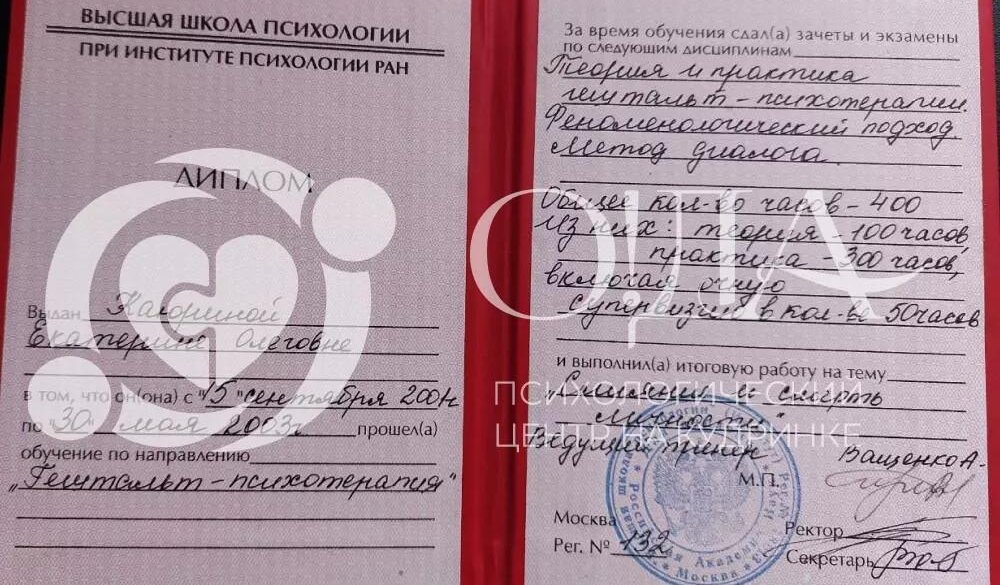 ВЫСШАЯ ШКОЛА ПСИХОЛОГИИ
ПРИ ИНСТИТУТЕ ПСИХОЛОГИИ РАН
ДИПЛОМ
Выдан
Екатерине Олеговне
в том, что он(она) с "15" сентября 2001г
по "30" мая 2003г прошел(а)
обучение по направлению
"Гештальт-психотерапия"
За время обучения сдал(а) зачеты и экзамены
по следующим дисциплинам
Теория и практика
гештальт-психотерапии.
Феноменологический подход.
Метод диалога.
Общее кол-во часов - 400
Из них: теория - 100 часов,
практика - 300 часов,
включая очную
супервизию в кол-ве 50 часов
и выполнил(а) итоговую работу на тему
и смерть
личности"
Ведущий тренер Ващенко А.
М.П.
Москва
Рег. № 132
Ректор
Секретарь
ОДА
ПСИХОЛОГИЧЕСКИЙ
ЦЕНТР НА КУДРИНКЕ
Москва